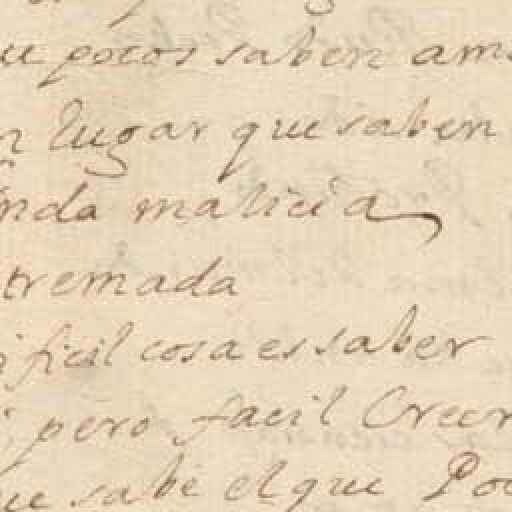 ue pocos saben am
n lugar que saben
nda malicia
tremada
ificil cosa es saber
pero facil Creer
ue sabe el que Poc